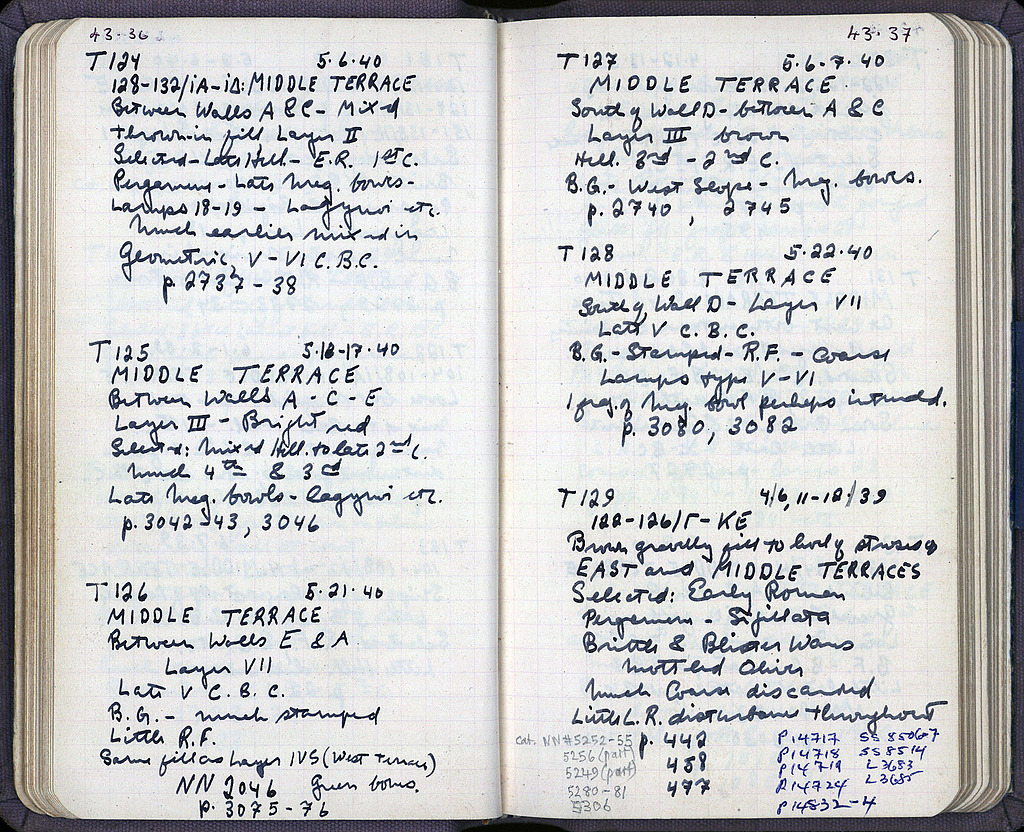 43-36
T 124 5·6·40
128-132/ΙΑ-ΙΔ: MIDDLE TERRACE
Between Walls A & C - Mixed
thrown-in fill, Layer II
Selected - Late Hell. - E.R. 1st C.
Pergamene - Late Meg. bowls -
Lamps 18-19 - Lagynoi etc.
Much earlier mixed in
Geometric, V-VI C. B.C.
p. 2737-38
T 125 5·16-17·40
MIDDLE TERRACE
Between Walls A - C - E
Layer III - Bright red
Selected: Mixed Hell. to late 2nd C.
Much 4th & 3rd
Late Meg. bowls - lagynoi etc.
p. 3042-43, 3046
T 126 5·21·40
MIDDLE TERRACE
Between Walls E & A
Layer VII
Late V C. B.C.
B.G. - much stamped
Little R.F.
Same fill as Layer IVS (West Terrace)
NN 2046 Green bowls.
p. 3075-76
43·37
T 127 5·6-7·40
MIDDLE TERRACE
South of Wall D - between A & C
Layer III brown
Hell. 3rd - 2nd C.
B.G. - West Slope - Meg. bowls.
p. 2740, 2745
T 128 5·22·40
MIDDLE TERRACE
South of Wall D - Layer VII
Late V C. B.C.
B.G. - Stamped - R.F. - Coarse
Lamps type V-VI
1 frag. of Meg. bowl perhaps intruded.
p. 3080, 3082
T 129 4/6, 11-12/39
122-126/Γ-ΚΕ
Brown gravelly fill to level of
EAST and MIDDLE TERRACES
Selected: Early Roman
Pergamene - Sigillata
Brittle & Blister Ware
Mottled Olive
Much Coarse discarded
Little L.R. disturbance throughout
Cat. NN#5252-55 p. 442 P14717 SS 8506-7
5256 (part) 458 P14718 SS8514
5249 (part) 477 P14719 L3683
5280-81 P14724 L3685
5306 P14832-4